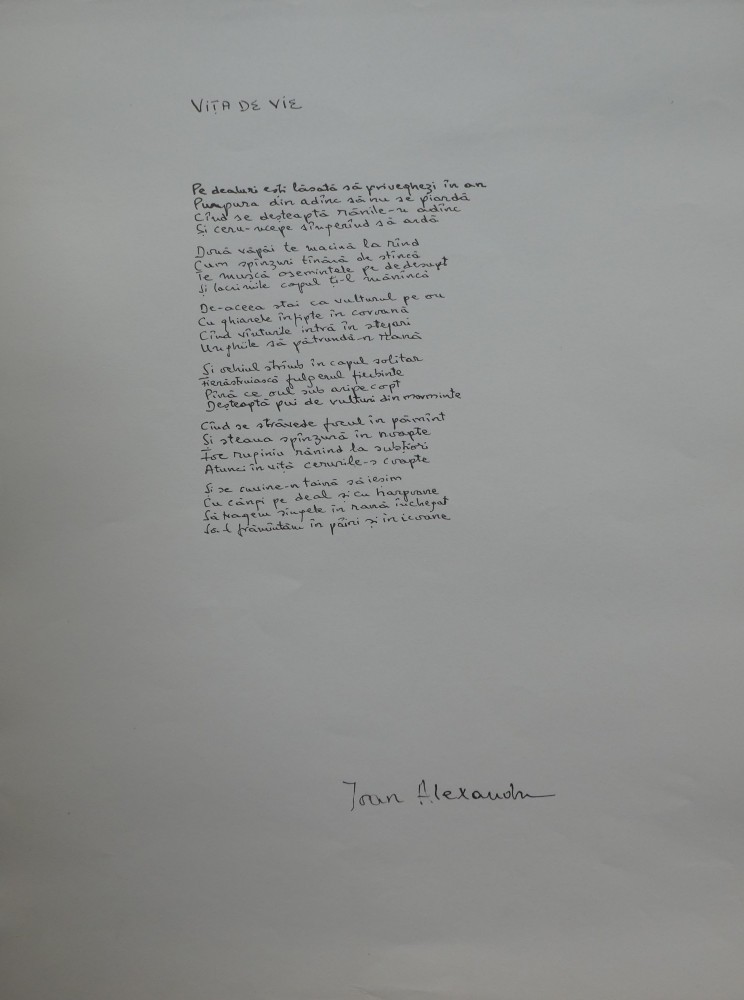 VIȚA DE VIE
Pe dealuri ești lăsată să priveghezi în an
Purpura din adînc să nu se piardă
Cînd se deșteaptă rănile-n adînc
Și ceru-ncepe sîngerînd să ardă
Două văpăi te macină la rînd
Cum spînzuri tînără de stîncă
Te mușcă osemintele pe dedesupt
Și lacrimile capul ți-l mănîncă
De-aceea stai ca vulturul pe ou
Cu ghiarele înfipte în coroană
Cînd vînturile intră în stejari
Unghiile să pătrundă-n rană
Și ochiul strîmb în capul solitar
Fierăstruiască fulgerul fierbinte
Pînă ce oul sub aripe copt
Deșteaptă pui de vulturi din morminte
Cînd se străvede focul în pămînt
Și steaua spînzură în noapte
Foc ruginiu rănind la subțiori
Atunci în viță cerurile-s coapte
Și se cuvine-n taină să ieșim
Cu căngi pe deal și cu harpoane
Să tragem sîngele în rană închegat
Să-l frămîntăm în pâini și în icoane
Ioan Alexandru